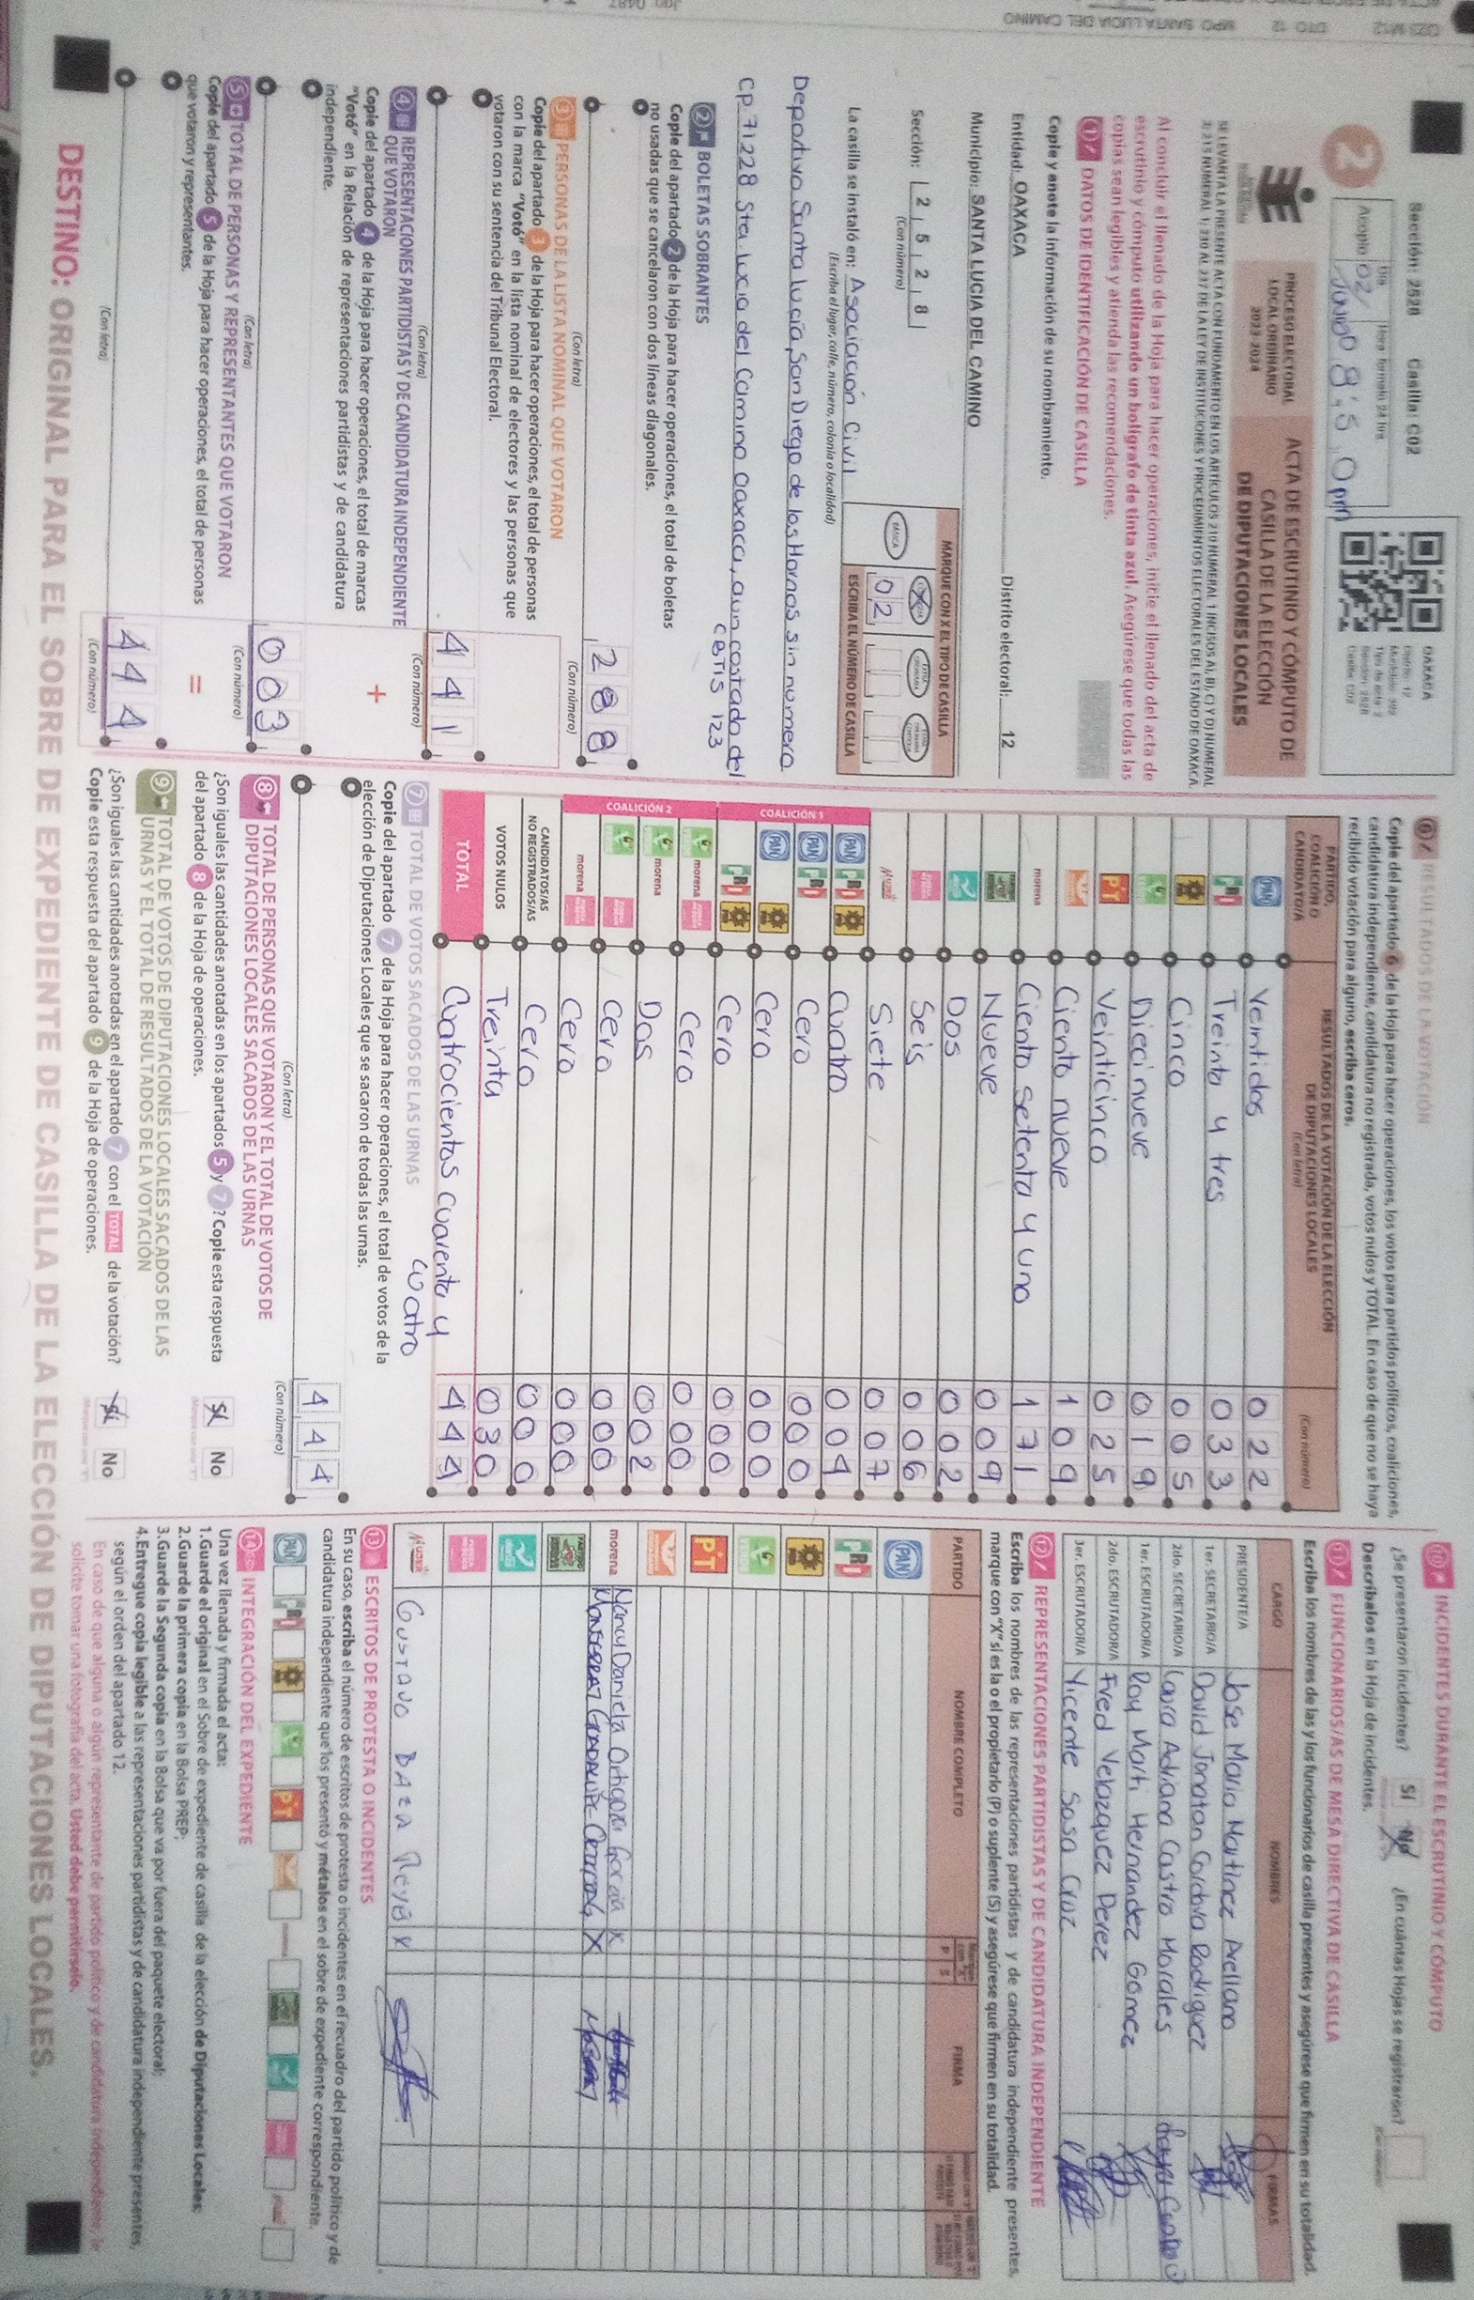 Sección: 2528 Casilla: C02
OAXACA
2
Acopio
Día
Hora formato 24 hrs
02/Junio 8:50pm
PROCESO ELECTORAL
LOCAL ORDINARIO
2023-2024
ACTA DE ESCRUTINIO Y CÓMPUTO DE
CASILLA DE LA ELECCIÓN
DE DIPUTACIONES LOCALES
Al concluir el llenado de la Hoja para hacer operaciones, inicie el llenado del acta de
escrutinio y cómputo utilizando un bolígrafo de tinta azul. Asegúrese que todas las
copias sean legibles y atienda las recomendaciones.
1 DATOS DE IDENTIFICACIÓN DE CASILLA
Copie y anote la información de su nombramiento.
Entidad: OAXACA Distrito electoral: 12
Municipio: SANTA LUCIA DEL CAMINO
Sección: 2 5 2 8
(Con número)
MARQUE CON X EL TIPO DE CASILLA
BÁSICA
ESCRIBA EL NÚMERO DE CASILLA
0 2
La casilla se instaló en: Asociación Civil
(Escriba el lugar, calle, número, colonia o localidad)
Deportivo Santa lucia, San Diego de los Hornos sin numero
CP 71228 Sta. lucia del Camino Oaxaca, a un costado del
CBTIS 123
2 BOLETAS SOBRANTES
Copie del apartado 2 de la Hoja para hacer operaciones, el total de boletas
no usadas que se cancelaron con dos líneas diagonales.
2 8 8
(Con letra) (Con número)
3 PERSONAS DE LA LISTA NOMINAL QUE VOTARON
Copie del apartado 3 de la Hoja para hacer operaciones, el total de personas
con la marca "Votó" en la lista nominal de electores y las personas que
votaron con su sentencia del Tribunal Electoral.
4 4 1
(Con letra) (Con número)
4 REPRESENTACIONES PARTIDISTAS Y DE CANDIDATURA INDEPENDIENTE
QUE VOTARON
+
Copie del apartado 4 de la Hoja para hacer operaciones, el total de marcas
"Votó" en la Relación de representaciones partidistas y de candidatura
independiente.
0 0 3
(Con letra) (Con número)
5 TOTAL DE PERSONAS Y REPRESENTANTES QUE VOTARON
Copie del apartado 5 de la Hoja para hacer operaciones, el total de personas
que votaron y representantes.
=
4 4 4
(Con letra) (Con número)
6 RESULTADOS DE LA VOTACIÓN
Copie del apartado 6 de la Hoja para hacer operaciones, los votos para partidos políticos, coaliciones,
candidatura independiente, candidatura no registrada, votos nulos y TOTAL. En caso de que no se haya
recibido votación para alguno, escriba ceros.
PARTIDO,
COALICIÓN O
CANDIDATO/A
RESULTADOS DE LA VOTACIÓN DE LA ELECCIÓN
DE DIPUTACIONES LOCALES
(Con letra)
(Con número)
PAN Veintidos 0 2 2
PRI Treinta y tres 0 3 3
Cinco 0 0 5
Diecinueve 0 1 9
PT Veinticinco 0 2 5
Ciento nueve 1 0 9
morena Ciento setenta y uno 1 7 1
Nueve 0 0 9
Dos 0 0 2
Seis 0 0 6
Mujer Siete 0 0 7
COALICIÓN 1
PAN PRI Cuatro 0 0 4
PAN PRI Cero 0 0 0
PAN Cero 0 0 0
PRI Cero 0 0 0
COALICIÓN 2
morena Cero 0 0 0
morena Dos 0 0 2
Cero 0 0 0
morena Cero 0 0 0
CANDIDATOS/AS
NO REGISTRADOS/AS
Cero 0 0 0
VOTOS NULOS Treinta 0 3 0
TOTAL Cuatrocientos cuarenta y cuatro 4 4 4
7 TOTAL DE VOTOS SACADOS DE LAS URNAS
Copie del apartado 7 de la Hoja para hacer operaciones, el total de votos de la
elección de Diputaciones Locales que se sacaron de todas las urnas.
4 4 4
(Con letra) (Con número)
8 TOTAL DE PERSONAS QUE VOTARON Y EL TOTAL DE VOTOS DE
DIPUTACIONES LOCALES SACADOS DE LAS URNAS
¿Son iguales las cantidades anotadas en los apartados 5 y 7? Copie esta respuesta
del apartado 8 de la Hoja de operaciones.
Sí No
9 TOTAL DE VOTOS DE DIPUTACIONES LOCALES SACADOS DE LAS
URNAS Y EL TOTAL DE RESULTADOS DE LA VOTACIÓN
¿Son iguales las cantidades anotadas en el apartado 7 con el TOTAL de la votación?
Copie esta respuesta del apartado 9 de la Hoja de operaciones.
Sí No
10 INCIDENTES DURANTE EL ESCRUTINIO Y CÓMPUTO
¿Se presentaron incidentes? Sí No ¿En cuántas Hojas se registraron?
Descríbalos en la Hoja de incidentes.
11 FUNCIONARIOS/AS DE MESA DIRECTIVA DE CASILLA
Escriba los nombres de las y los funcionarios de casilla presentes y asegúrese que firmen en su totalidad.
CARGO NOMBRES FIRMAS
PRESIDENTE/A Jose Maria Martinez Arellano
1er. SECRETARIO/A David Jonatan Cordova Rodriguez
2do. SECRETARIO/A Laura Adriana Castro Morales
1er. ESCRUTADOR/A Roy Marti Hernandez Gomez
2do. ESCRUTADOR/A Fred Velazquez Perez
3er. ESCRUTADOR/A Vicente Sosa Cruz
12 REPRESENTACIONES PARTIDISTAS Y DE CANDIDATURA INDEPENDIENTE
Escriba los nombres de las representaciones partidistas y de candidatura independiente presentes,
marque con "X" si es la o el propietario (P) o suplente (S) y asegúrese que firmen en su totalidad.
PARTIDO NOMBRE COMPLETO P S FIRMA
PAN
PRI
PT
morena Nancy Daniela Ortigoza Garcia X
Montserrat Guadalupe X
Mujer Gustavo Baza Reyes X
13 ESCRITOS DE PROTESTA O INCIDENTES
En su caso, escriba el número de escritos de protesta o incidentes en el recuadro del partido político y de
candidatura independiente que los presentó y métalos en el sobre de expediente correspondiente.
PAN PRI PT
14 INTEGRACIÓN DEL EXPEDIENTE
Una vez llenada y firmada el acta:
1.Guarde el original en el Sobre de expediente de casilla de la elección de Diputaciones Locales;
2.Guarde la primera copia en la Bolsa PREP;
3.Guarde la Segunda copia en la Bolsa que va por fuera del paquete electoral;
4.Entregue copia legible a las representaciones partidistas y de candidatura independiente presentes,
según el orden del apartado 12.
En caso de que alguna o algún representante de partido político y de candidatura independiente, le
solicite tomar una fotografía del acta. Usted debe permitírselo.
DESTINO: ORIGINAL PARA EL SOBRE DE EXPEDIENTE DE CASILLA DE LA ELECCIÓN DE DIPUTACIONES LOCALES.